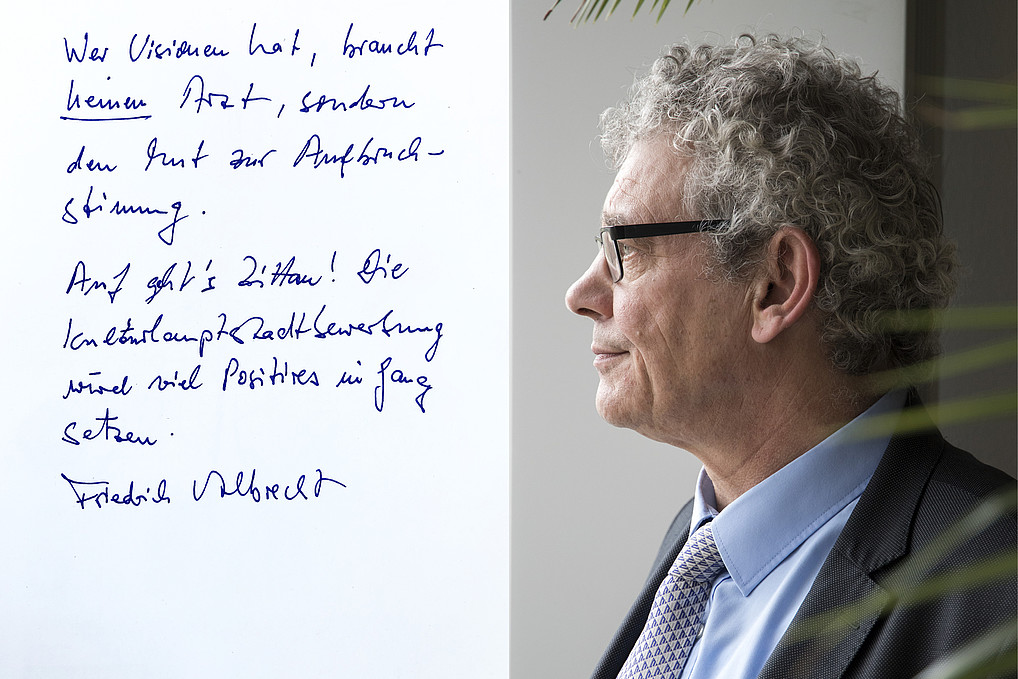 Wer Visionen hat, braucht
keinen Arzt, sondern
den Mut zur Aufbruch-
stimmung.
Auf geht's Zittau! Die
Kulturhauptstadtbewerbung
wird viel Positives in Gang
setzen.
Friedrich Vollbrecht